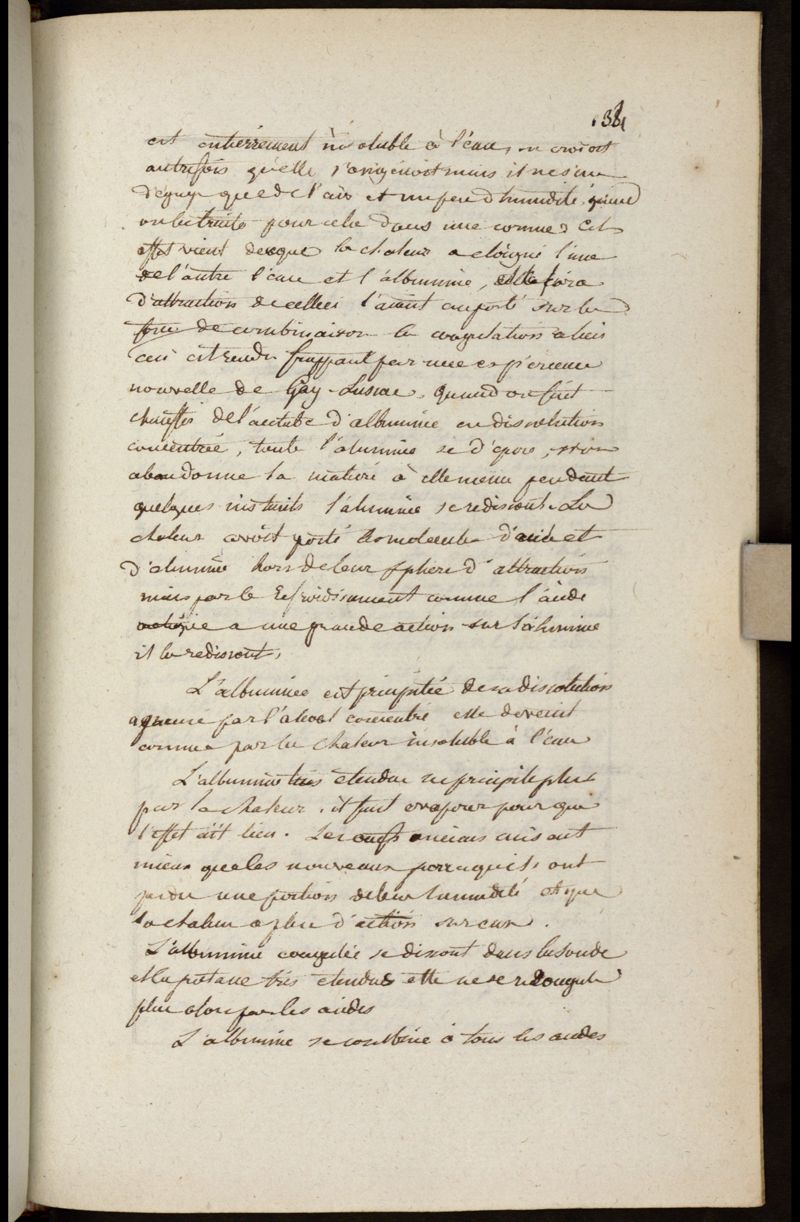 est entièrement insoluble à l'eau, on croioit
autrefois qu'elle s'oxigenoit mais il ne s'en
dégage que de l'air et un peu d'humidité quand
on la traite pour cela dans une cornue. Cet
effet vient de ce que la chaleur a éloigné l'une
de l'autre l'eau et l'albumine, et la force
d'attraction de celleci l'aiant emporté sur la
force de combinaison la coagulation a lieu
ceci est rendu frappant par une expérience
nouvelle de Gay-Lussac. quand on fait
chauffer de l'acetate d'albumine en dissolution
concentrée, toute l'alumine se dépose, si on
abandonne la matiere à elle meme pendant
quelques instants l'alumine se redissout. La
chaleur avoit porté les molecules d'acide et
d'alumine hors de leur sphere d'attraction
mais par le refroidissement comme l'acide
a une grande action sur l'alumine
il la redissout,
L'albumine est précipitée de sa dissolution
aqueuse par l'alcool concentré elle devient
comme par la chaleur insoluble à l'eau
L'albumine tres etendue ne précipite plus
par la chaleur. il faut evaporer pour que
l'effet ait lieu. Les oeufs anciens cuisent
mieux que les nouveaux parcequ'ils ont
perdu une portion de leur humidité et que
la chaleur a plus d'action sur eux.
L'albumine coagulée se dissout dans la soude
et la potasse très etendues elle ne se recoagule
plus alors par les acides
L'albumine se combine à tous les acides